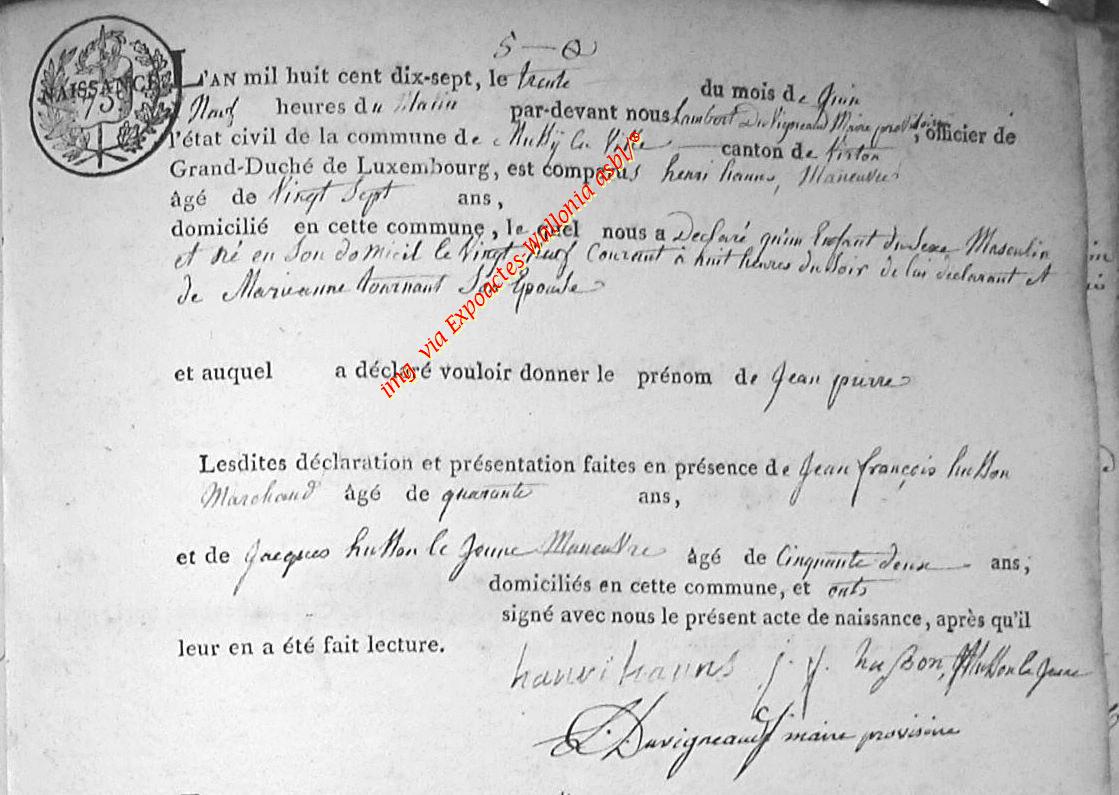 5
NAISSANCE
L'AN mil huit cent dix-sept, le trente du mois de Juin
Neuf heures du Matin par-devant nous Lambert Duvigneaud Maire provisoire, officier de
l'état civil de la commune de la canton de Virton
Grand-Duché de Luxembourg, est comparus henri hanns, Maneuvre
âgé de Vingt Sept ans,
domicilié en cette commune, le quel nous a Declaré qu'un Enfant du Sexe Masculin
et né en Son domicil le Vingt neuf Courant a huit heures du Soir de lui déclarant et
de Marieanne tournant Son Epouse
et auquel a déclaré vouloir donner le prénom de Jean pierre
Lesdites déclaration et présentation faites en présence de Jean françois husson
Marchand âgé de quarante ans,
et de Jacques husson le Jeune Maneuvre âgé de Cinquante deux ans;
domiciliés en cette commune, et onts
signé avec nous le présent acte de naissance, après qu'il
leur en a été fait lecture.
hanri hanns j. f. husson, J husson le Jeune
L. Duvigneaud maire provisoire
img via Expoactes-Wallonia asbl/©